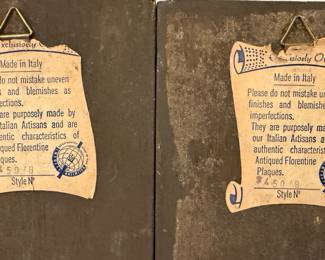 Exclusively O
Made in Italy
do not mistake uneven
s and blemishes as
fections.
are purposely made by
Italian Artisans and are
hentic characteristics of
iqued Florentine
ques.
450/8
Style Nº
Exclusively O
Made in Italy
Please do not mistake une
finishes and blemishes
imperfections.
They are purposely made
our Italian Artisans and
authentic characteristics
Antiqued Florentine
Plaques.
450/8
Style Nº